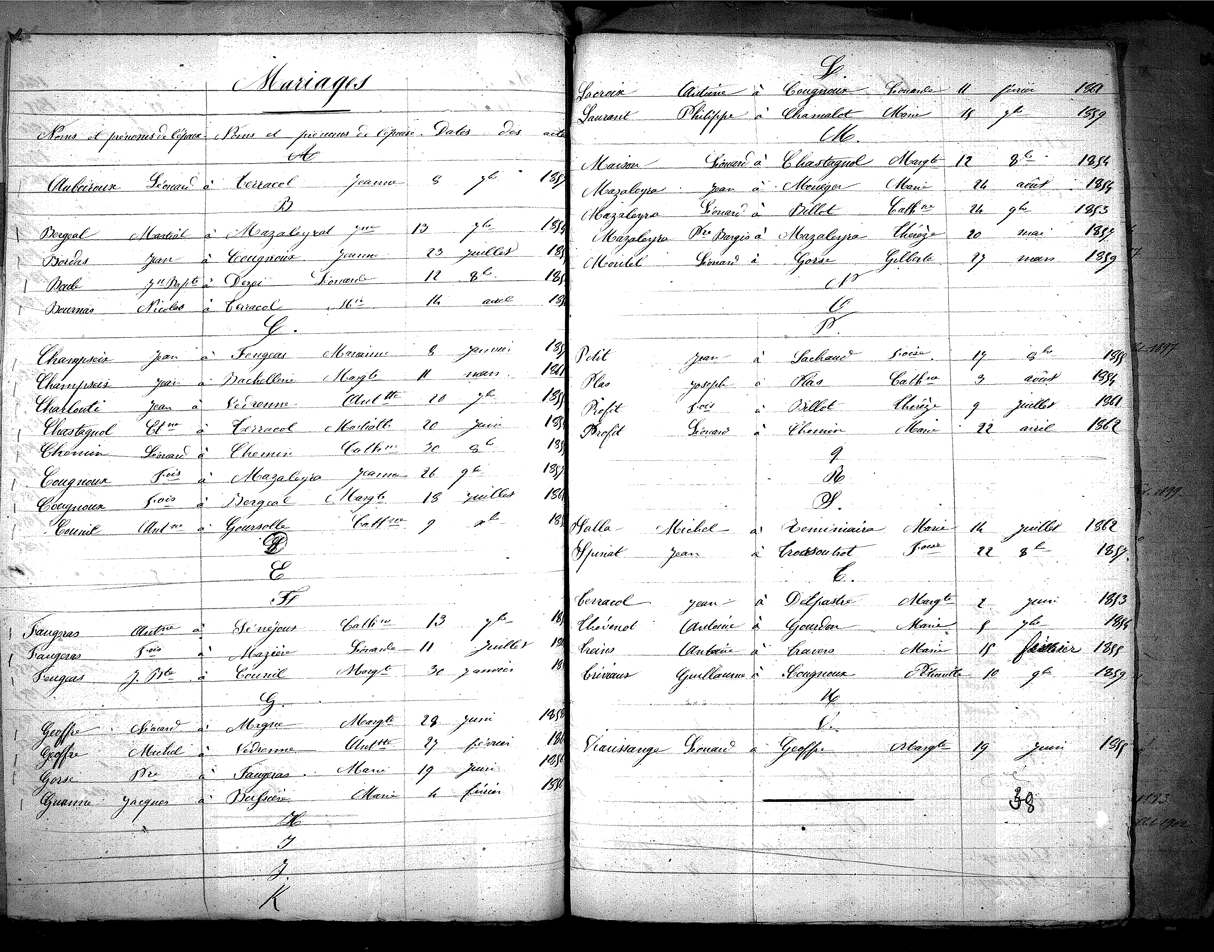 Mariages
Noms et prénoms de l'époux. Noms et prénoms de l'épouse. Dates des acte
A
Auboiroux Léonard à Terracol Jeanne 8 9bre
B
Bergeal Martial à Mazaleyrat Jne 13 9bre
Bordes Jean à Cougnoux Jeanne 23 juillet
Jn Bapte à Léonarde 12 8bre
Bournas Nicolas à Terracol Mie 14 avril
C.
Champseix Jean à Feugeas Marianne 8 janvier
Champseix Jean à Bachellerie Margte 11 mars.
Charlouté Jean à Vedrenne Anttte 20 7bre
Chastagnol Etne à Terracol Martiale 20 juin
Chemin Léonard à Chemin Cathne 30 8bre
Cougnoux Fois à Mazaleyra Jeanne 26 9bre
Cougnoux Fois à Bergeal Margte 18 juillet
Counil Antne à Goursolle Cathne 9
D
E
F
Faugeras Antne à Sénéjoux Cathne 13 9bre
Faugeras Fois à Mazière Léonarde 11 Juillet
Feugeas J. Bte à Counil Margte 30 janvier
G.
Geoffre Léonard à Magne Margte 28 juin
Geoffre Michel à Vedrenne Anttte 27 février
Gorse Pre à Faugeras Marie 19 juin
Jacques à Marie 4 février
H
I
J.
K
L.
Lacroix Antoine à Cougnoux Léonarde 11 février 1861
Laurant Philippe à Chamalot Marie 15 9bre 1859
M.
Maison Léonard à Chastagnol Margte 12 8bre 1854
Mazaleyra Jean à Monéger Marie 24 août 1854
Mazaleyra Léonard à Billot Cathne 24 9bre 1853
Mazaleyra Pre à Mazaleyra Thérèze 20 mai 1857
Montel Léonard à Gorse Gilberte 27 mars 1859
N
O
P.
Petit Jean à Lachaud Foise 17 8bre 1855
Plas Joseph à Plas Cathne 3 août 1854
Profit Fois à Billot Thérèze 9 juillet 1861
Profit Léonard à Chemin Marie 22 avril 1862
Q
R
S.
Salla Michel à Marie 14 juillet 1862
Spinat Jean à Foise 22 8bre 1857
T.
Terracol Jean à Delpastre Margte 2 juin 1853
Thévenot Antoine à Gourdon Marie 5 9bre 1854
Trains Antoine à Travers Marie 15 février 1855
Guillaume à Cougnoux 10 9bre 1859
U
V.
Viaussange Léonard à Geoffre Margte 19 juin 1855
38